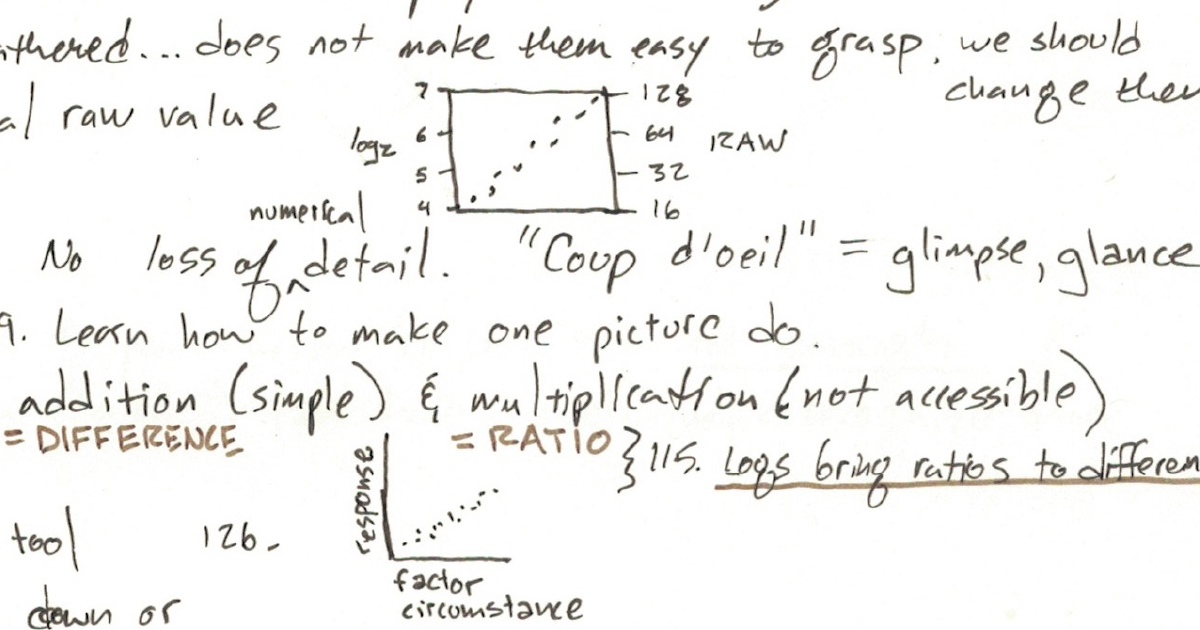 athered... does not make them easy to grasp, we should
change them
al raw value
7 128
log2 6 64 RAW
5 32
numerical 4 16
No loss of detail. "Coup d'oeil" = glimpse, glance
9. Learn how to make one picture do.
addition (simple) & multiplication (not accessible)
= DIFFERENCE = RATIO } 115. Logs bring ratios to differen
response
tool 126.
factor
down or circumstance